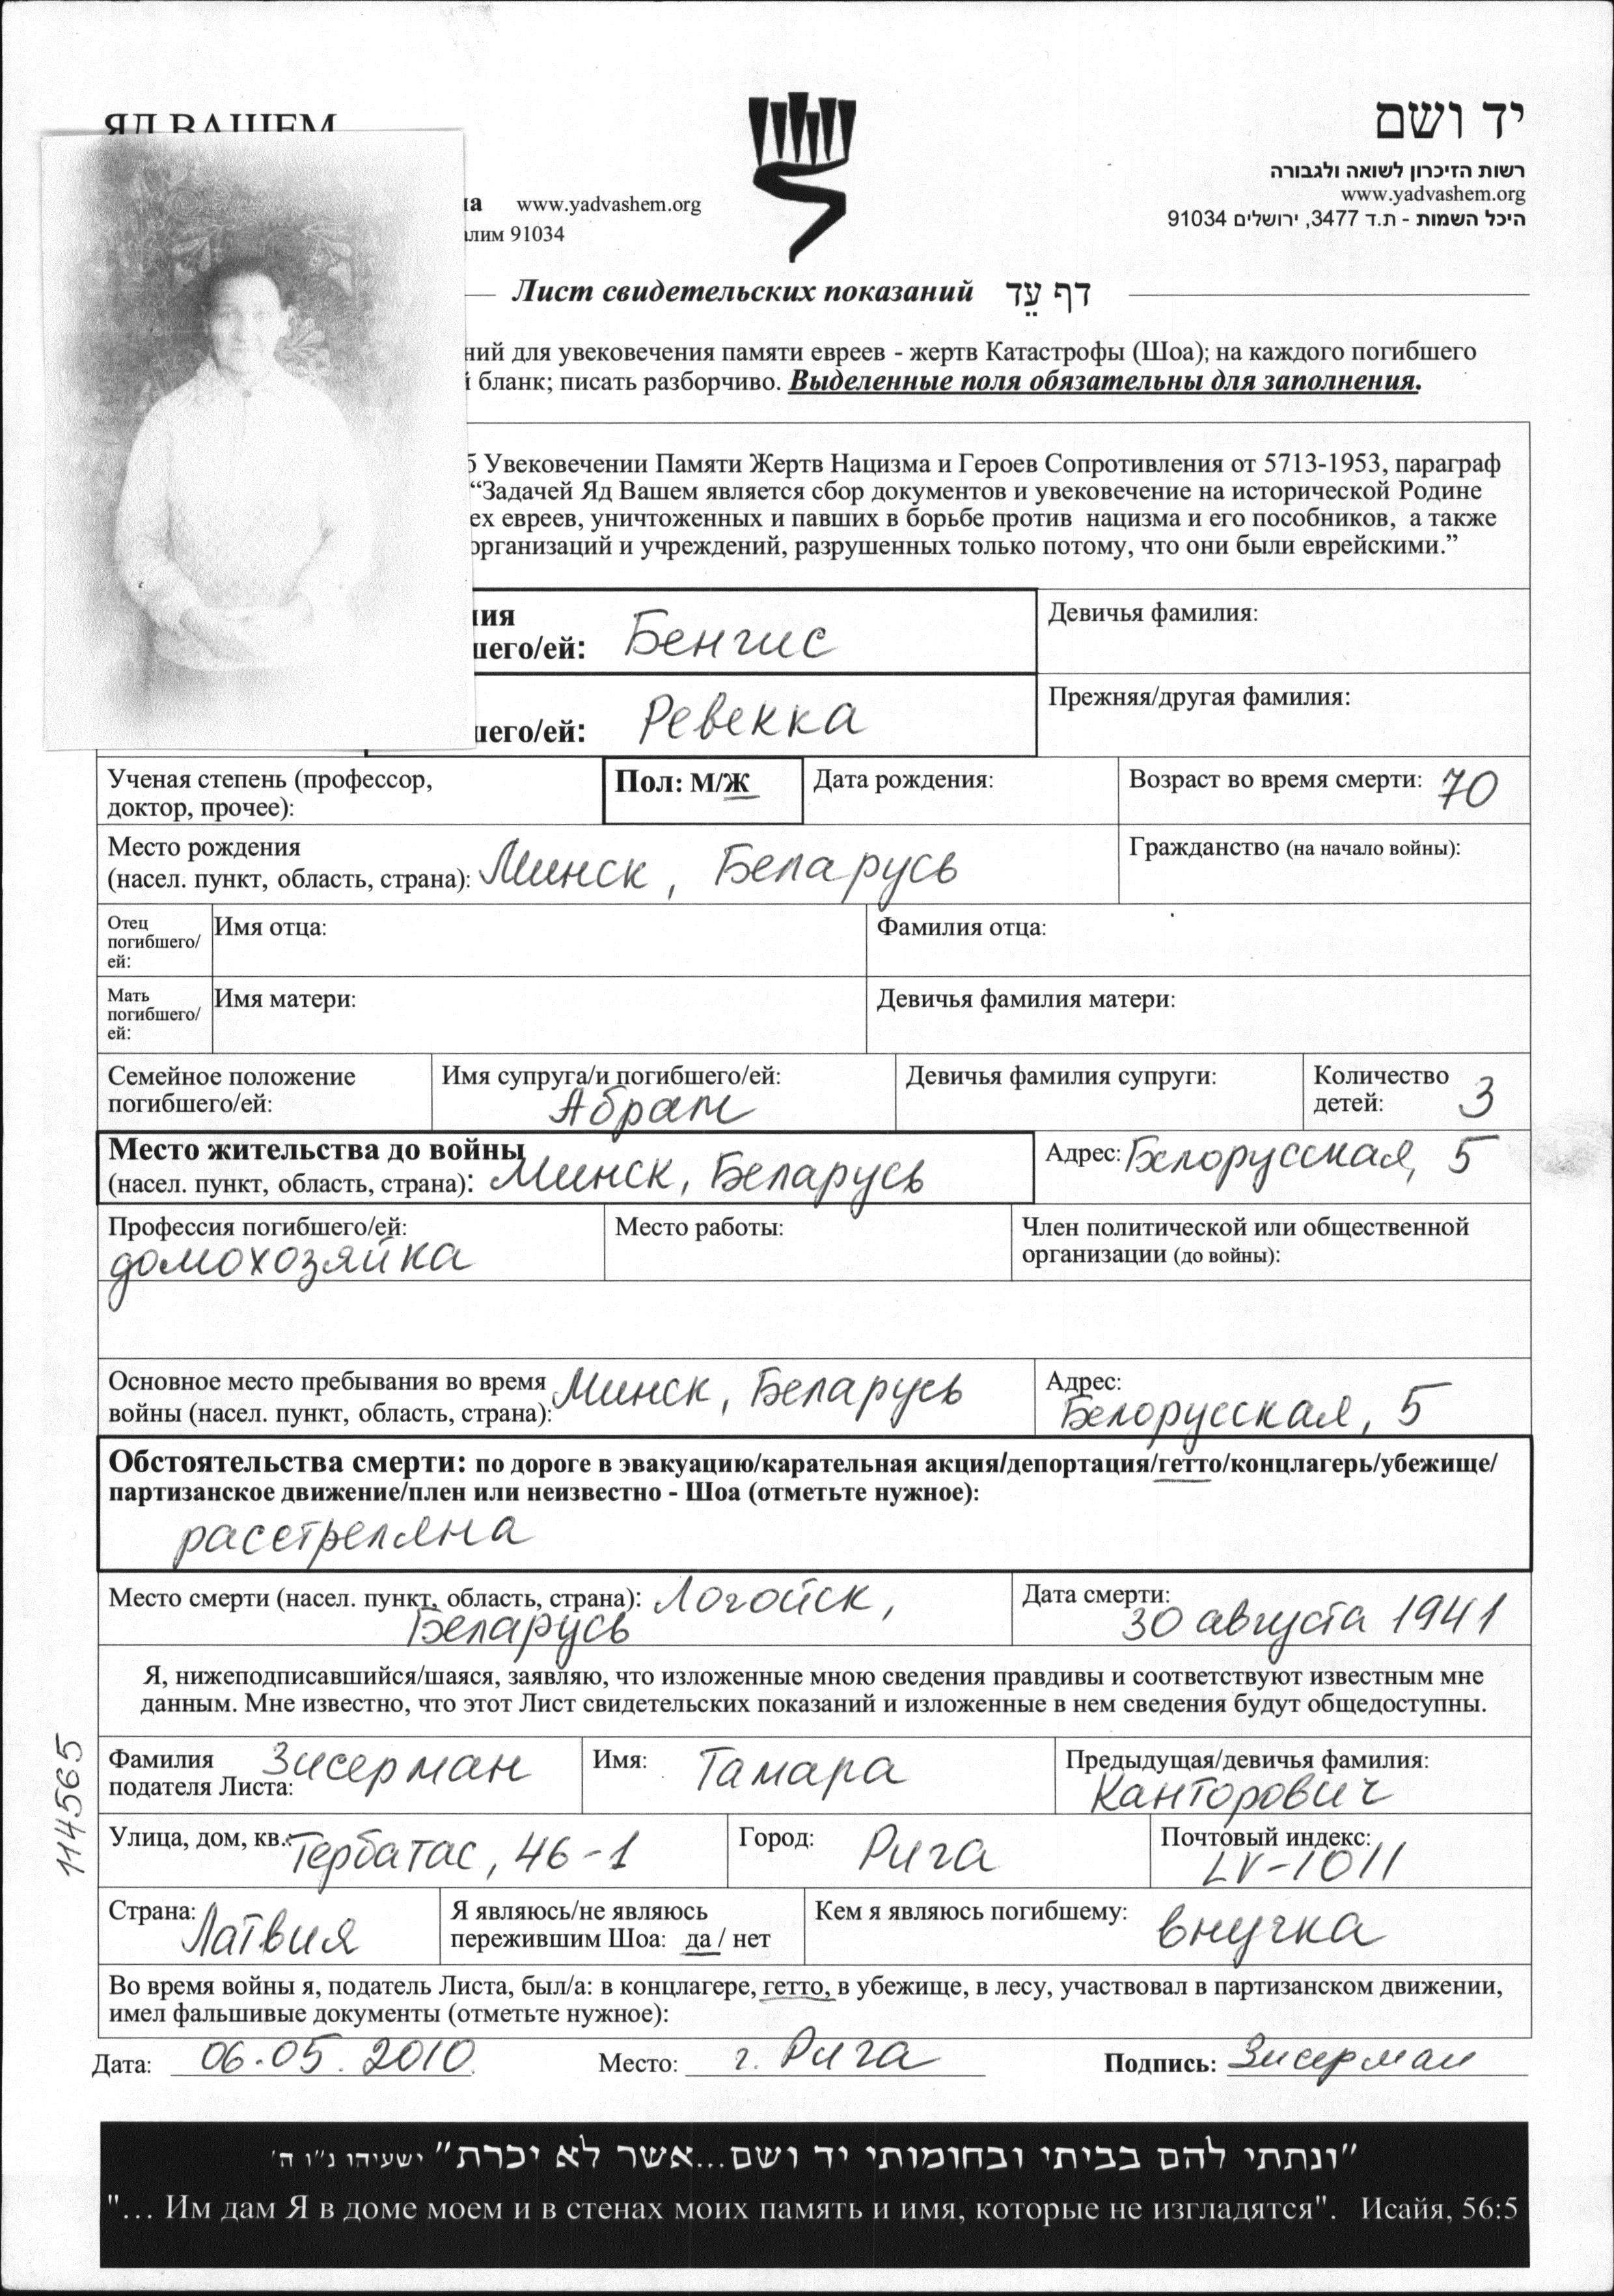 ЯД ВАШЕМ
יד ושם
רשות הזיכרון לשואה ולגבורה
www.yadvashem.org
www.yadvashem.org
היכל השמות - ת.ד 3477, ירושלים 91034
лим 91034
Лист свидетельских показаний דף עֵד
ний для увековечения памяти евреев - жертв Катастрофы (Шоа); на каждого погибшего
й бланк; писать разборчиво. Выделенные поля обязательны для заполнения.
б Увековечении Памяти Жертв Нацизма и Героев Сопротивления от 5713-1953, параграф
“Задачей Яд Вашем является сбор документов и увековечение на исторической Родине
ех евреев, уничтоженных и павших в борьбе против нацизма и его пособников, а также
организаций и учреждений, разрушенных только потому, что они были еврейскими.”
ия
шего/ей: Бенгис
Девичья фамилия:
шего/ей: Ревекка
Прежняя/другая фамилия:
Ученая степень (профессор,
доктор, прочее):
Пол: М/Ж
Дата рождения:
Возраст во время смерти: 70
Место рождения
(насел. пункт, область, страна): Минск, Беларусь
Гражданство (на начало войны):
Отец
погибшего/
ей:
Имя отца:
Фамилия отца:
Мать
погибшего/
ей:
Имя матери:
Девичья фамилия матери:
Семейное положение
погибшего/ей:
Имя супруга/и погибшего/ей:
Абрам
Девичья фамилия супруги:
Количество
детей: 3
Место жительства до войны
(насел. пункт, область, страна): Минск, Беларусь
Адрес: Белорусская, 5
Профессия погибшего/ей:
домохозяйка
Место работы:
Член политической или общественной
организации (до войны):
Основное место пребывания во время
войны (насел. пункт, область, страна): Минск, Беларусь
Адрес:
Белорусская, 5
Обстоятельства смерти: по дороге в эвакуацию/карательная акция/депортация/гетто/концлагерь/убежище/
партизанское движение/плен или неизвестно - Шоа (отметьте нужное):
расстреляна
Место смерти (насел. пункт, область, страна): Логойск,
Беларусь
Дата смерти:
30 августа 1941
Я, нижеподписавшийся/шаяся, заявляю, что изложенные мною сведения правдивы и соответствуют известным мне
данным. Мне известно, что этот Лист свидетельских показаний и изложенные в нем сведения будут общедоступны.
114565
Фамилия
подателя Листа: Зисерман
Имя: Тамара
Предыдущая/девичья фамилия:
Канторович
Улица, дом, кв.: Тербатас, 46-1
Город: Рига
Почтовый индекс:
LV-1011
Страна: Латвия
Я являюсь/не являюсь
пережившим Шоа: да / нет
Кем я являюсь погибшему: внучка
Во время войны я, податель Листа, был/а: в концлагере, гетто, в убежище, в лесу, участвовал в партизанском движении,
имел фальшивые документы (отметьте нужное):
Дата: 06.05.2010. Место: г. Рига Подпись: Зисерман
"ונתתי להם בביתי ובחומותי יד ושם...אשר לא יכרת" ישעיהו נ"ו ה'
"... Им дам Я в доме моем и в стенах моих память и имя, которые не изгладятся". Исайя, 56:5